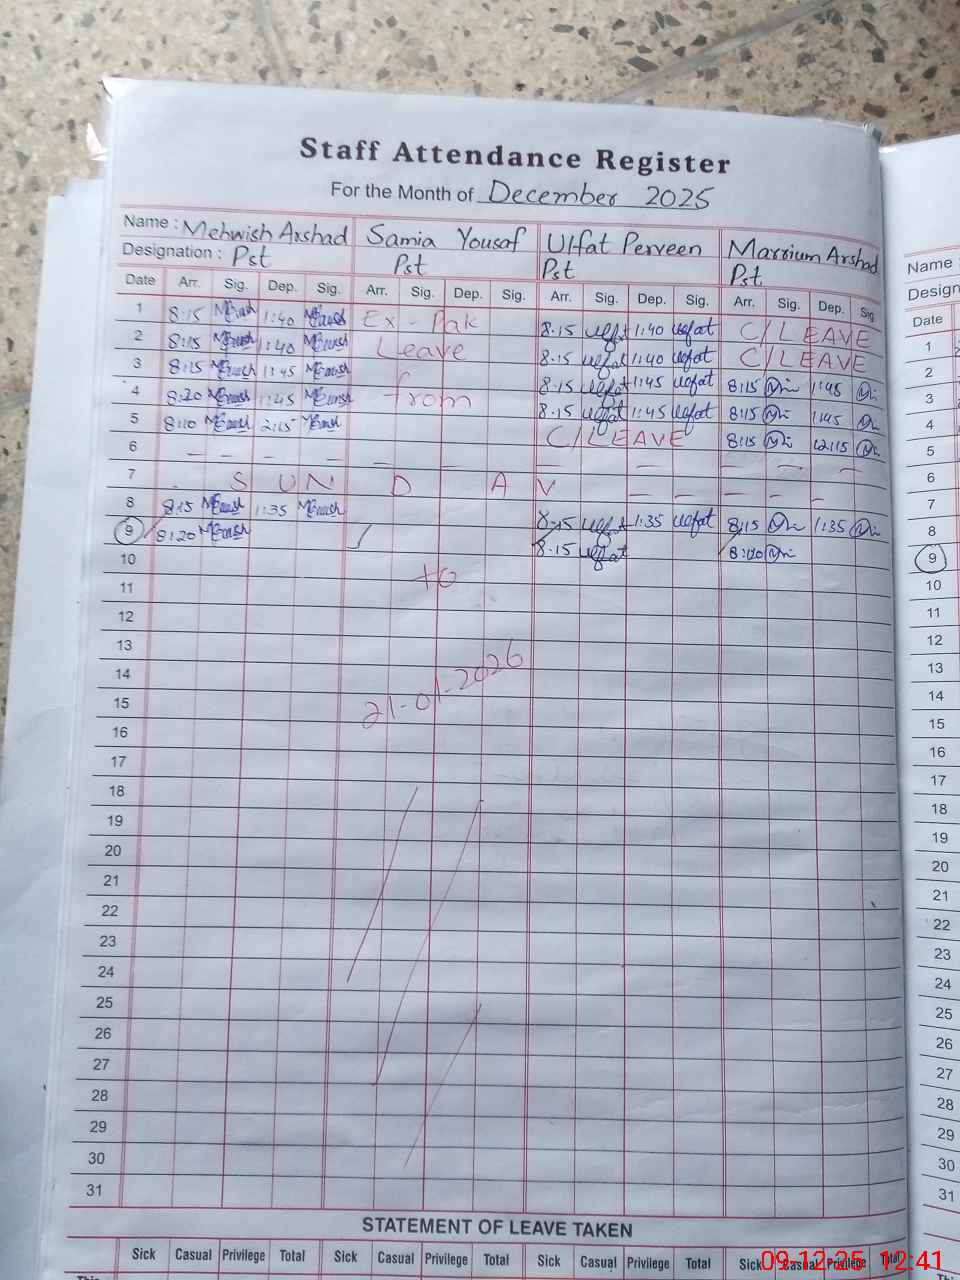 Staff Attendance Register
For the Month of December 2025
Name : Mehwish Arshad Samia Yousaf Ulfat Perveen Marrium Arshad
Designation : Pst Pst Pst Pst
Date Arr. Sig. Dep. Sig. Arr. Sig. Dep. Sig. Arr. Sig. Dep. Sig. Arr. Sig. Dep. Sig.
1 8:15 1:40 Ex-Pak 8.15 Ulfat 1:40 Ulfat C/LEAVE
2 8:15 1:40 Leave 8.15 Ulfat 1:40 Ulfat C/LEAVE
3 8:15 1:45 8.15 Ulfat 1:45 Ulfat 8:15 1:45
4 8:20 1:45 from 8.15 Ulfat 1:45 Ulfat 8:15 1:45
5 8:10 2:15 C/LEAVE 8:15 12:15
6 – – – – – – – – – –
7 SUNDAY – – – – –
8 8:15 1:35 8.15 Ulfat 1:35 Ulfat 8:15 1:35
9 8:20 8.15 Ulfat 8:20
10
11 to
12
13
14
15 21-01-2026
16
17
18
19
20
21
22
23
24
25
26
27
28
29
30
31
STATEMENT OF LEAVE TAKEN
Sick Casual Privilege Total Sick Casual Privilege Total Sick Casual Privilege Total Sick Casual Privilege Total
This
Name :
Design
Date
1
2
3
4
5
6
7
8
9
10
11
12
13
14
15
16
17
18
19
20
21
22
23
24
25
26
27
28
29
30
31
09.12.25 12:41